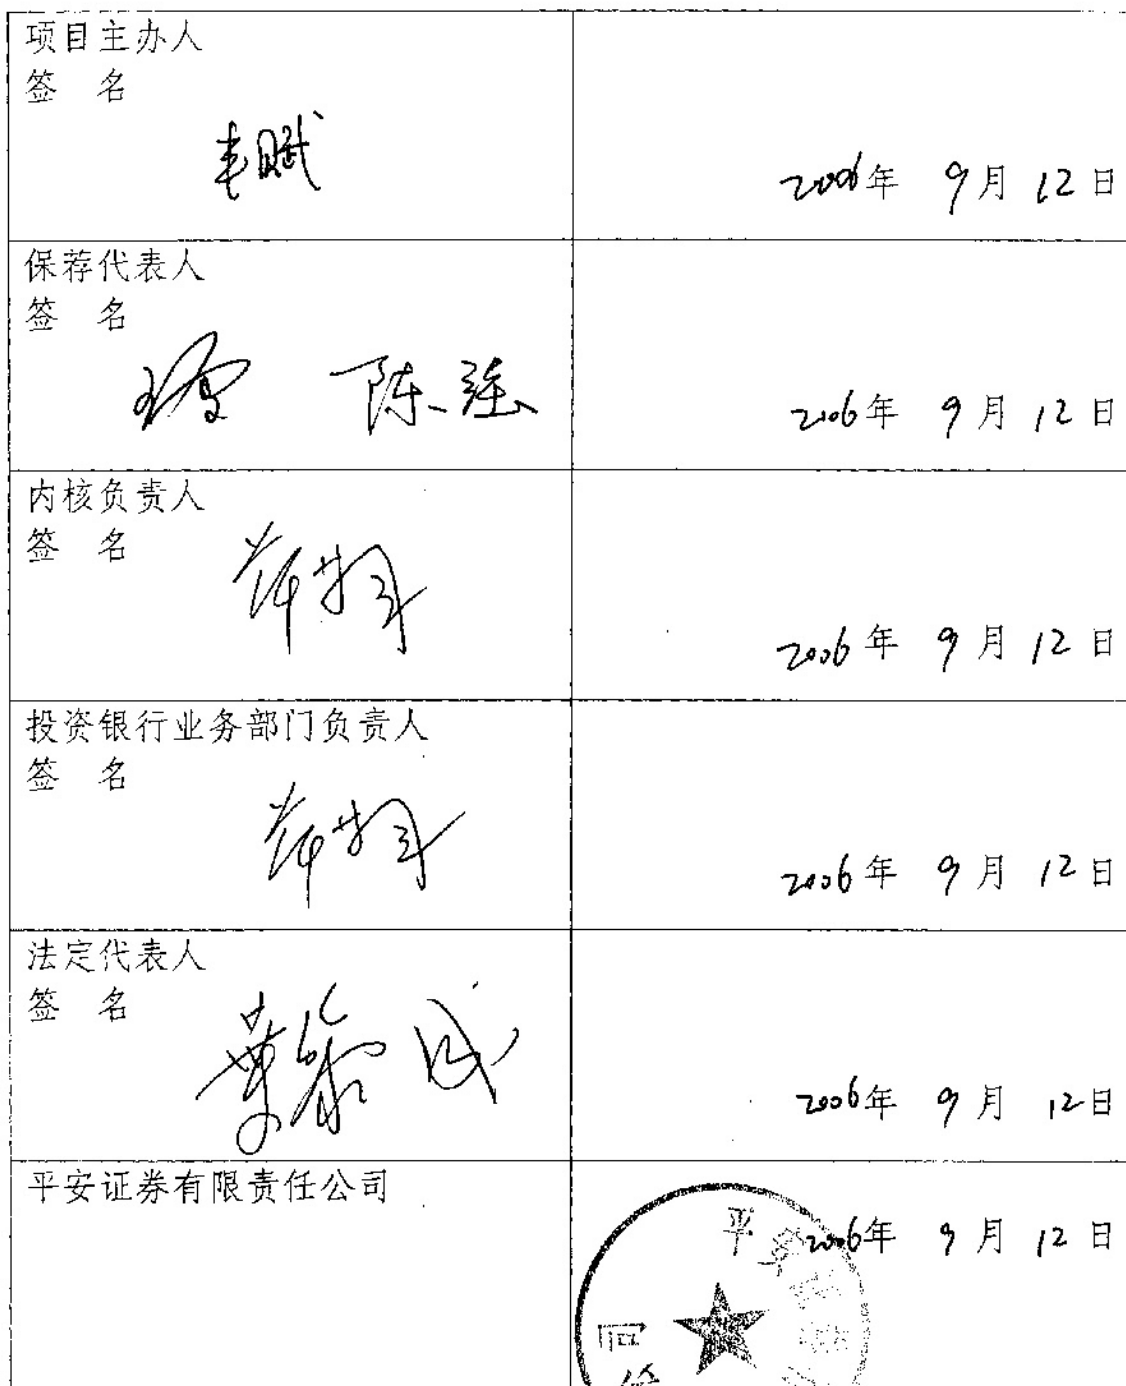 项目主办人
签 名
2006年 9月 12日
保荐代表人
签 名
陈强
2006年 9月 12日
内核负责人
签 名
2006年 9月 12日
投资银行业务部门负责人
签 名
2006年 9月 12日
法定代表人
签 名
叶黎成
2006年 9月 12日
平安证券有限责任公司
2006年 9月 12日
平安证券
司